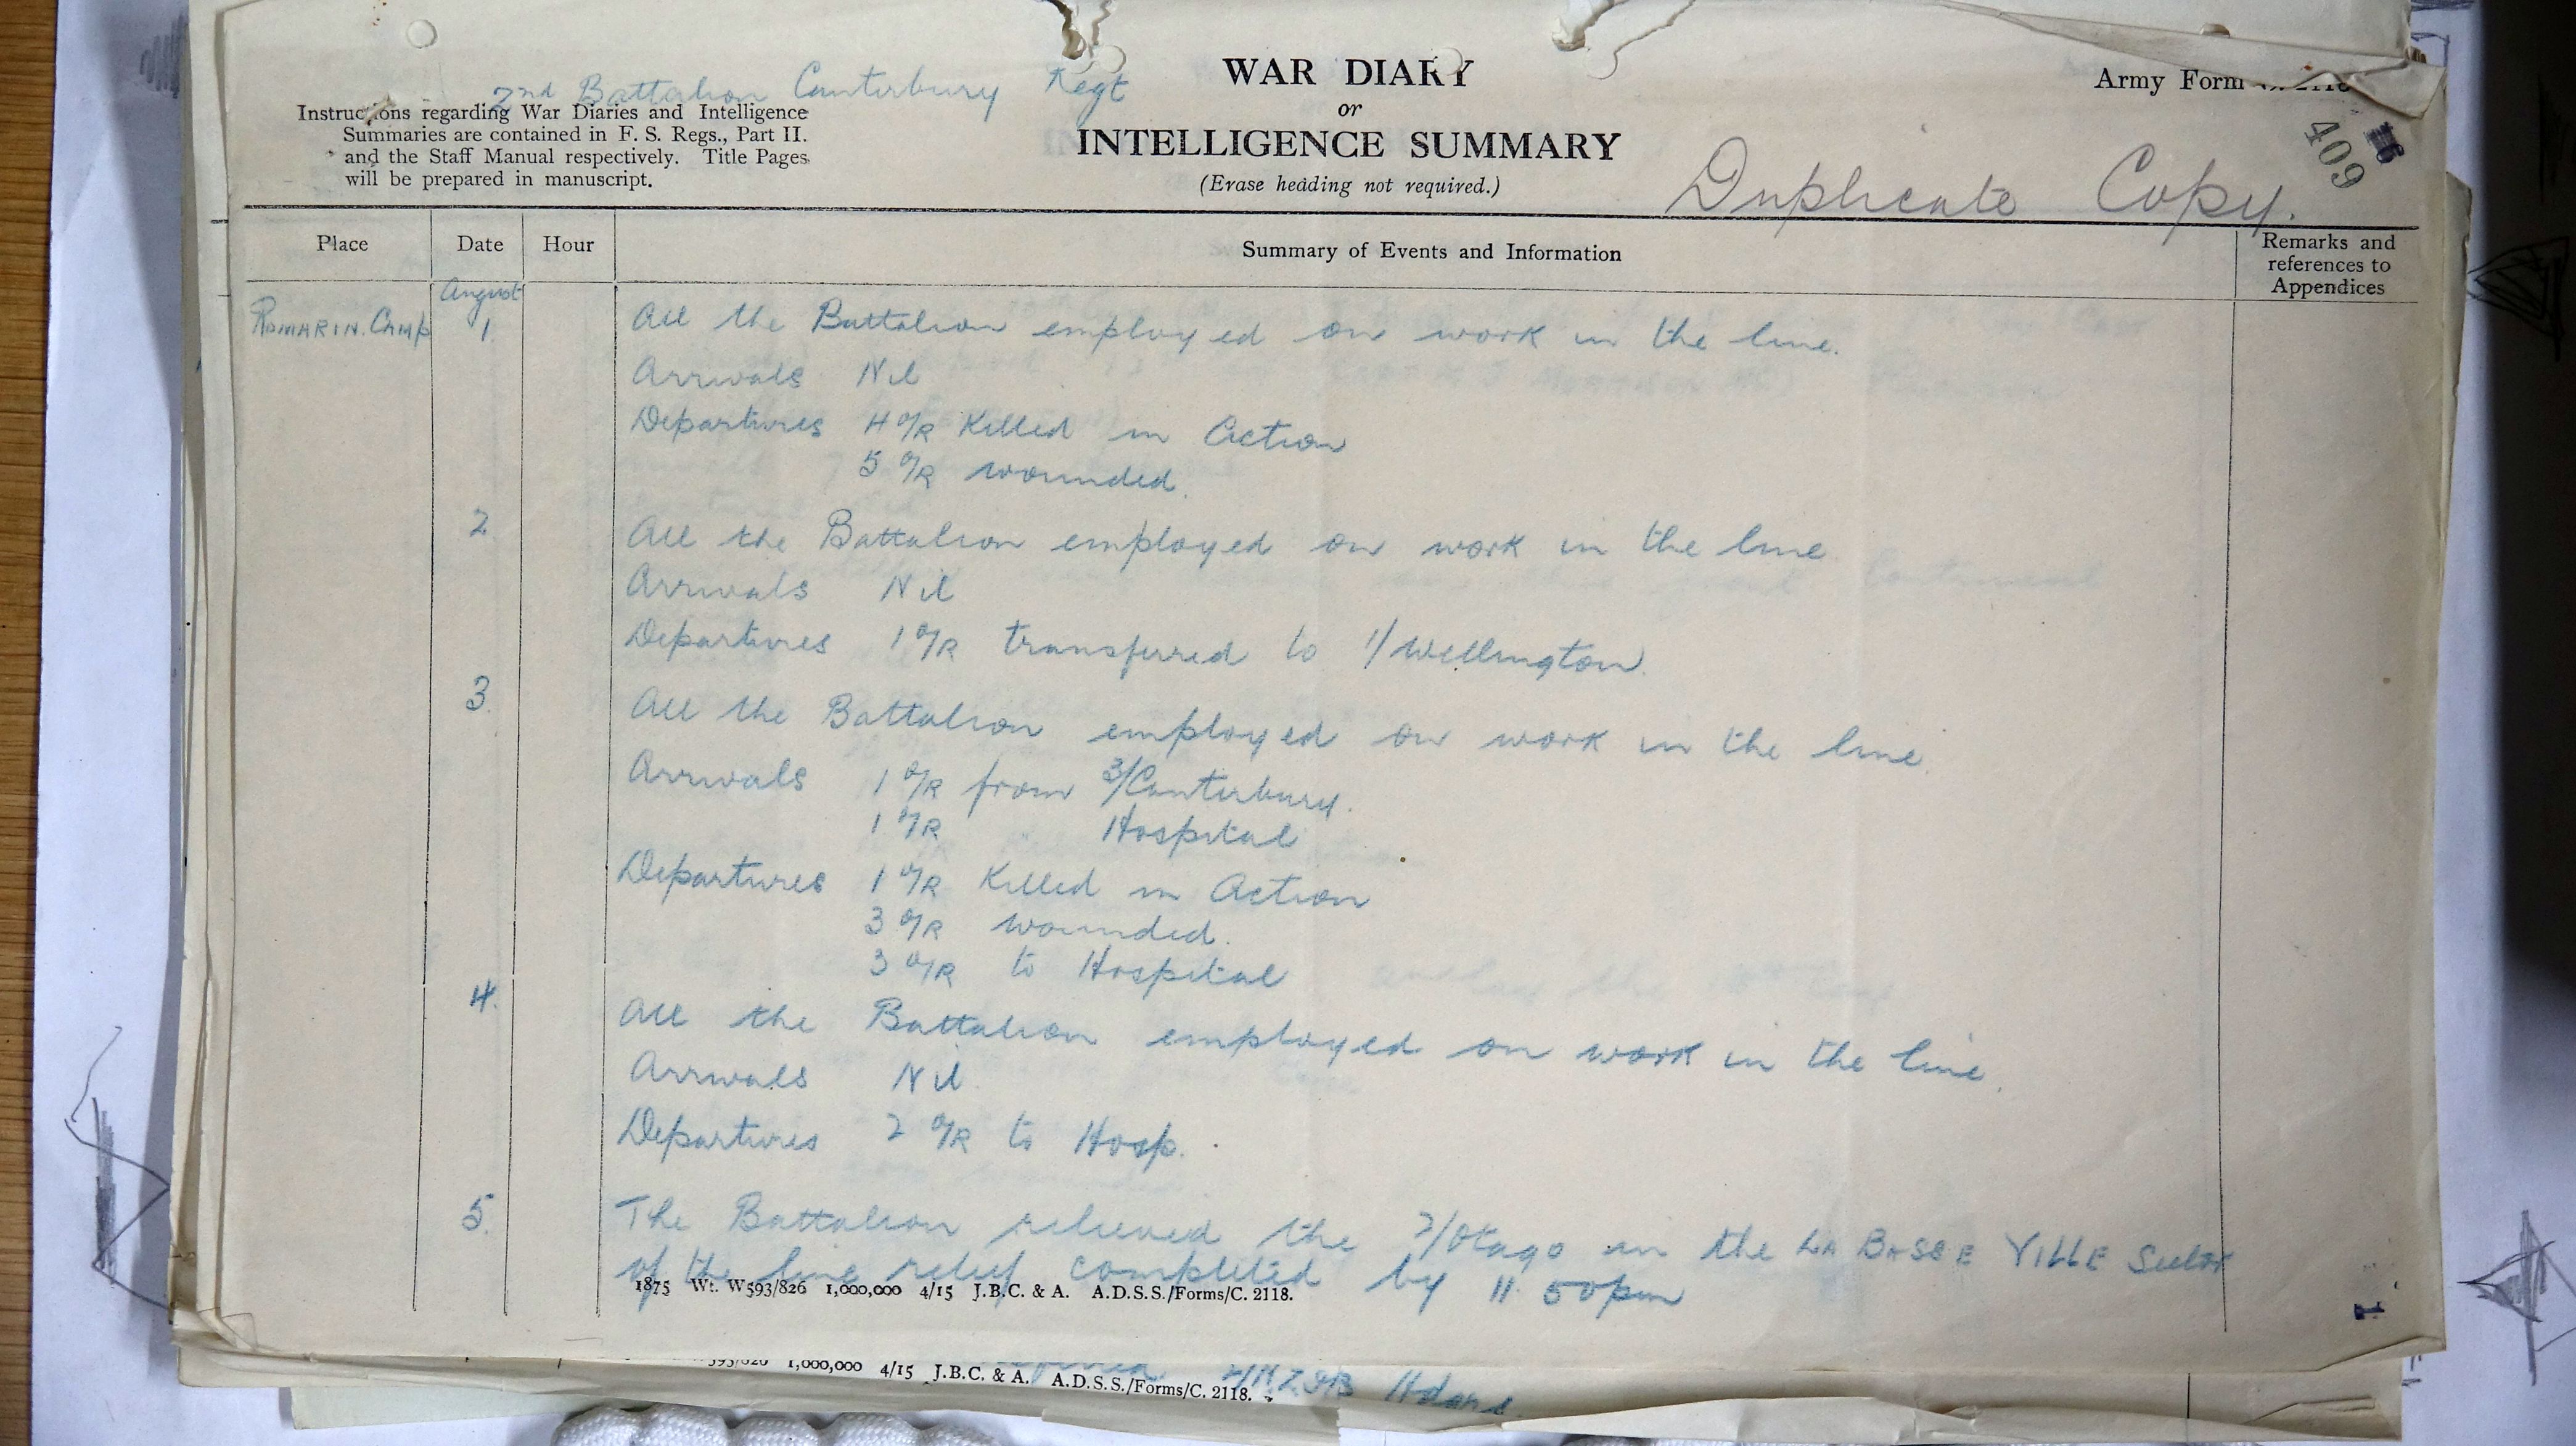 2nd Battalion Canterbury Regt
Instructions regarding War Diaries and Intelligence
Summaries are contained in F. S. Regs., Part II.
and the Staff Manual respectively. Title Pages
will be prepared in manuscript.
WAR DIARY
or
INTELLIGENCE SUMMARY
(Erase heading not required.)
Army Form
409
Duplicate Copy.
Place Date Hour Summary of Events and Information Remarks and
references to
Appendices
August
ROMARIN. CAMP 1. All the Battalion employed on work in the line.
Arrivals Nil
Departures 4 O/R Killed in Action
5 O/R wounded.
2 All the Battalion employed on work in the line
Arrivals Nil
Departures 1 O/R transferred to 1/Wellington.
3. All the Battalion employed on work in the line.
Arrivals 1 O/R from 3/Canterbury.
1 O/R " Hospital
Departures 1 O/R Killed in Action
3 O/R wounded.
3 O/R to Hospital
4. All the Battalion employed on work in the line.
Arrivals Nil
Departures 2 O/R to Hosp.
5. The Battalion relieved the 2/Otago in the LA BASSE VILLE Sector
of the line relief completed by 11.50pm
1875 Wt. W593/826 1,000,000 4/15 J.B.C. & A. A.D.S.S./Forms/C. 2118.
1
1,000,000 4/15 J.B.C. & A. A.D.S.S./Forms/C. 2118.